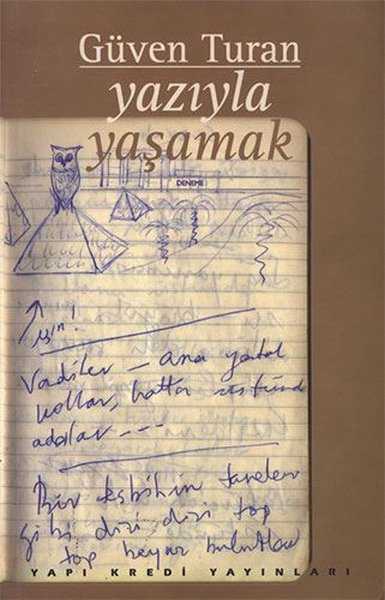 Güven Turan
yazıyla
yaşamak
DENEME
için!
Vadiler – ana yatak
kollar, hatta üstünde
adalar - - -
Bir tesbihin taneleri
gibi dizi dizi top
top beyaz bulutlar
YAPI KREDİ YAYINLARI